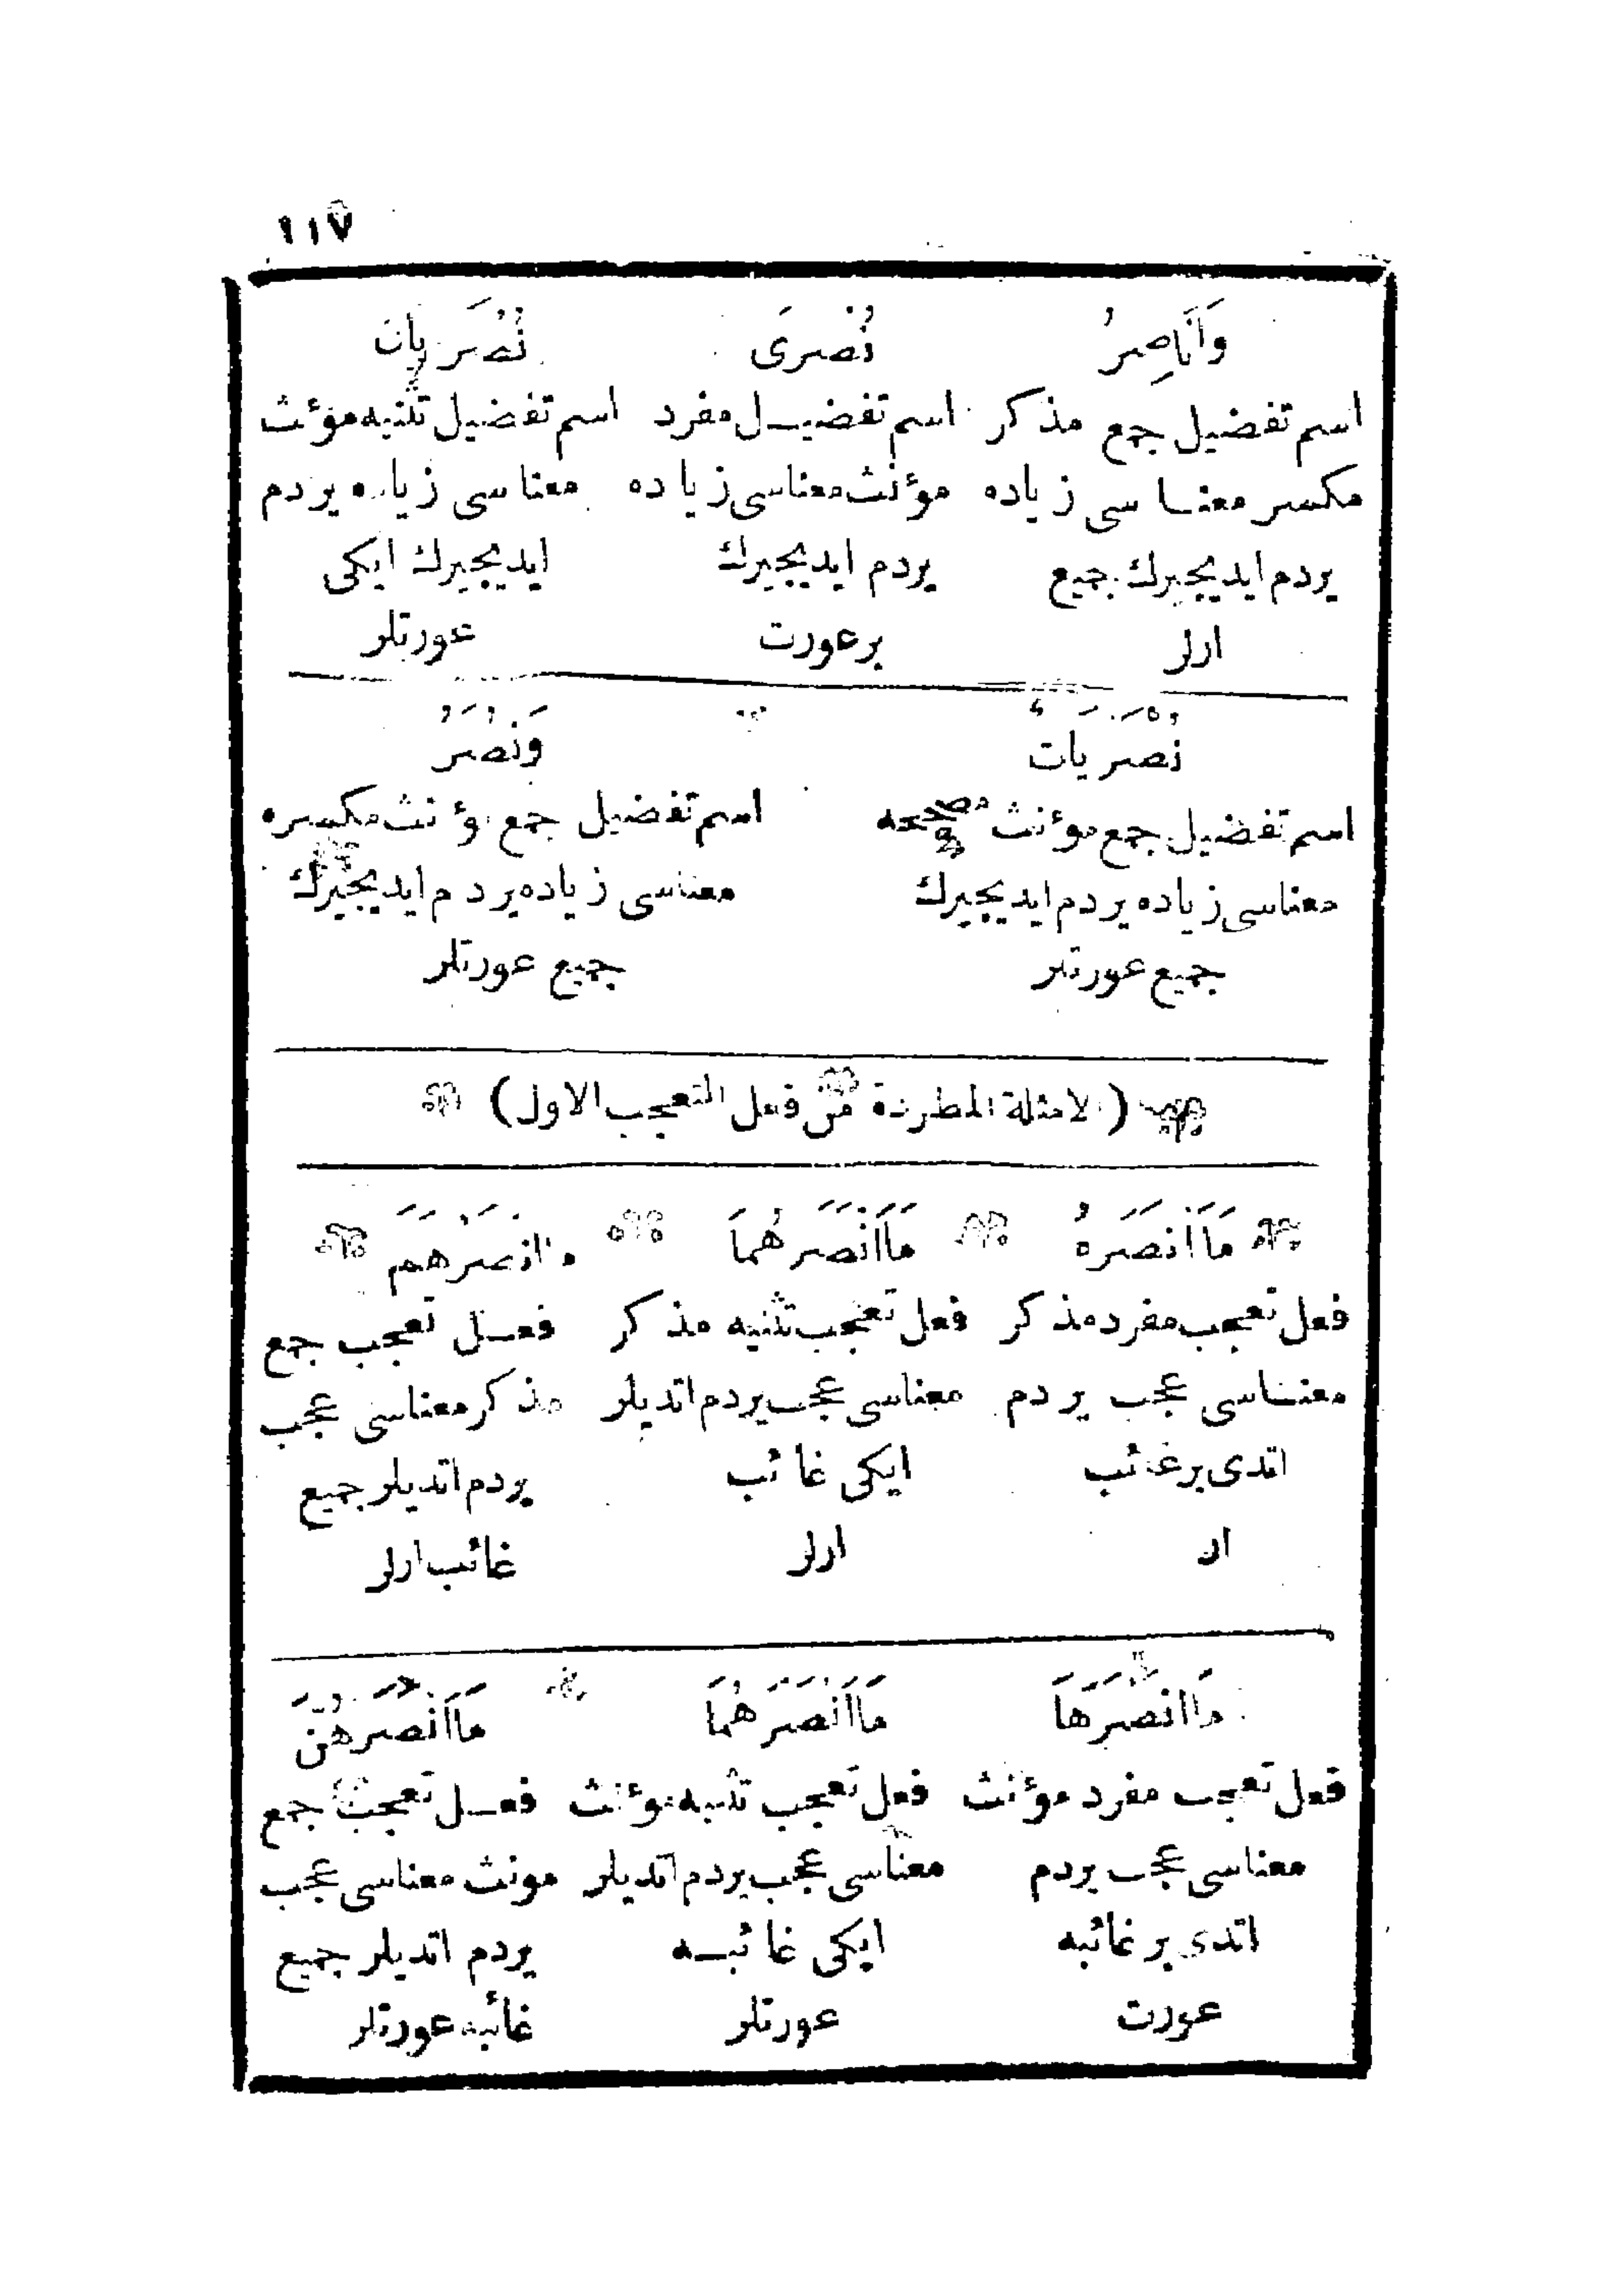 ١١٧
وَاَنَاصِرُ نُصْرَى نُصْرَيَانِ
اسم تفضيل جمع مذكر اسم تفضيل مفرد اسم تفضيل تثنيه مؤنث
مكسر معناسى زياده مؤنث معناسى زياده معناسى زياده يردم
يردم ايديجيرك جميع يردم ايديجيرك ايديجيرك ايكى
ارلر برعورت عورتلر
نُصْرَيَاتٌ وَنُصَرُ
اسم تفضيل جمع مؤنث مصححه اسم تفضيل جمع مؤنث مكسره
معناسى زياده يردم ايديجيرك معناسى زياده يردم ايديجيرك
جميع عورتلر جميع عورتلر
(الامثلة المطردة من فعل التعجب الاول)
مَااَنْصَرَهُ مَااَنْصَرَهُمَا مااَنْصَرَهُمْ
فعل تعجب مفرد مذكر فعل تعجب تثنيه مذكر فعل تعجب جمع
معناسى عجب يردم معناسى عجب يردم اتديلر مذكر معناسى عجب
اتدى برغائب ايكى غائب يردم اتديلر جميع
ار ارلر غائب ارلر
مَااَنْصَرَهَا مَااَنْصَرَهُمَا مَااَنْصَرَهُنَّ
فعل تعجب مفرد مؤنث فعل تعجب تثنيه مؤنث فعل تعجب جمع
معناسى عجب يردم معناسى عجب يردم اتديلر مونث معناسى عجب
اتدى بر غائبه ايكى غائبه يردم اتديلر جميع
عورت عورتلر غائبه عورتلر